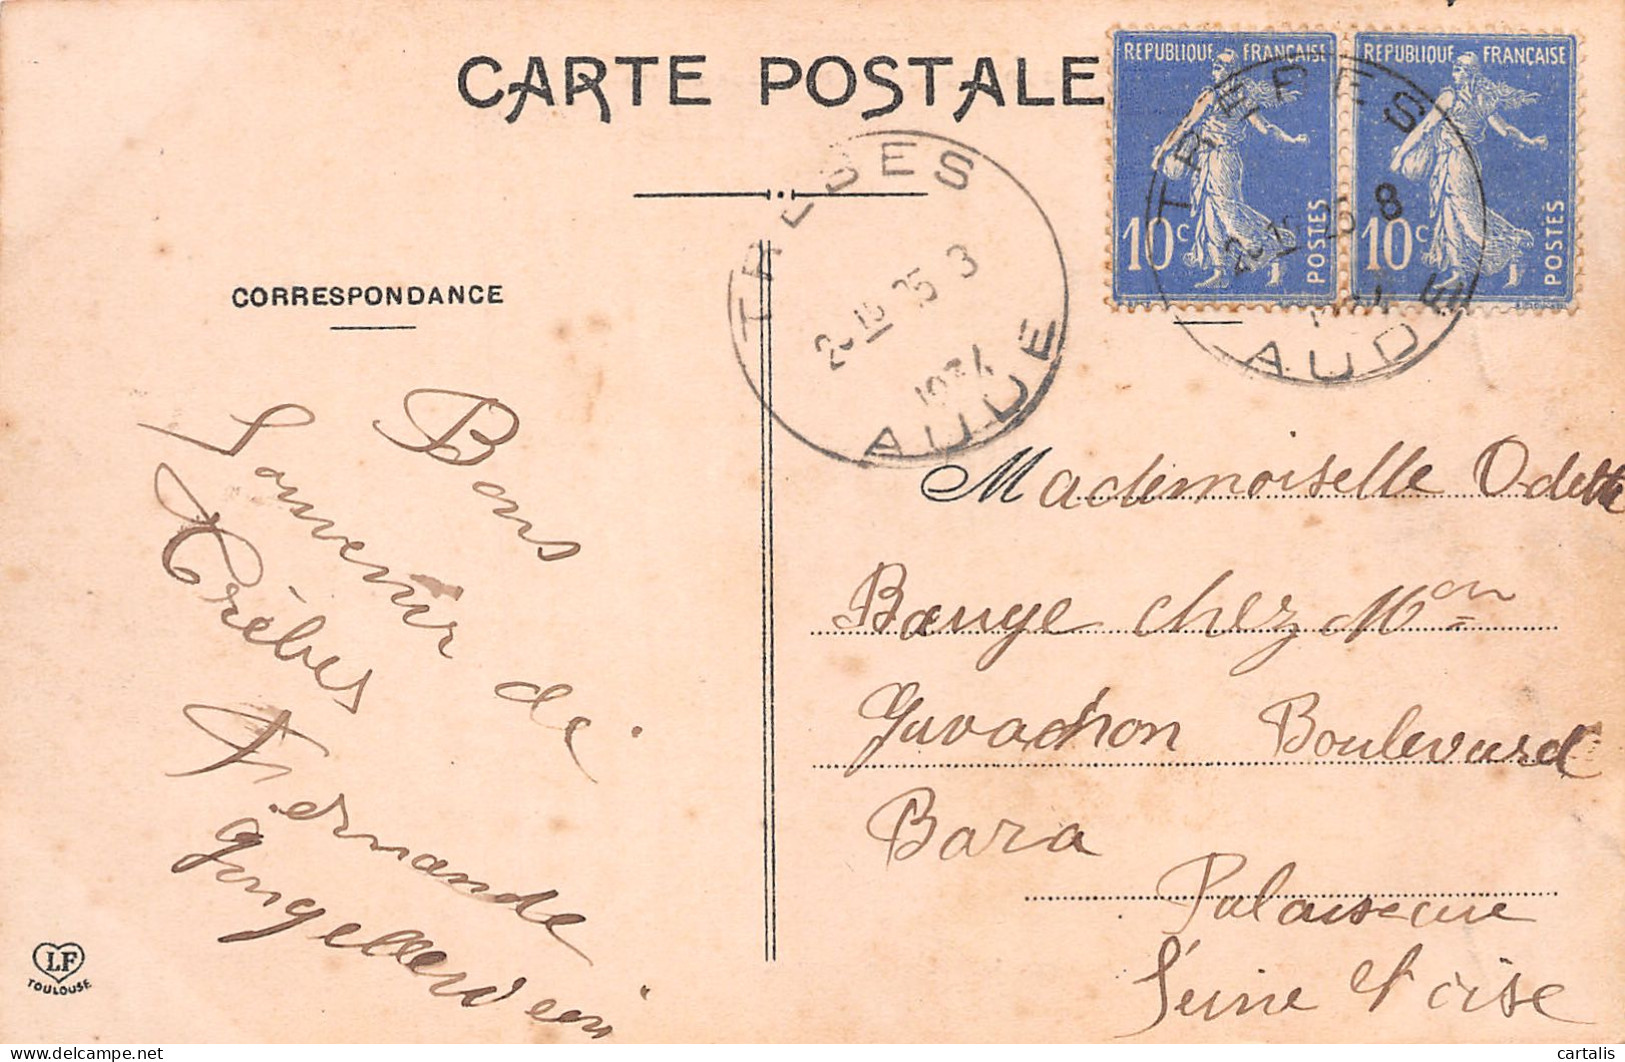 CARTE POSTALE
REPUBLIQUE FRANÇAISE
10c POSTES
REPUBLIQUE FRANÇAISE
10c POSTES
TREBES
8
AUDE
TREBES
3
1934
AUDE
CORRESPONDANCE
Bons
Souvenir de
Trèbes
Fernande
Mademoiselle Odette
Bauye chez Mon
Gavachon Boulevard
Bara
Palaiseau
Seine et oise
LF
TOULOUSE
cartalis